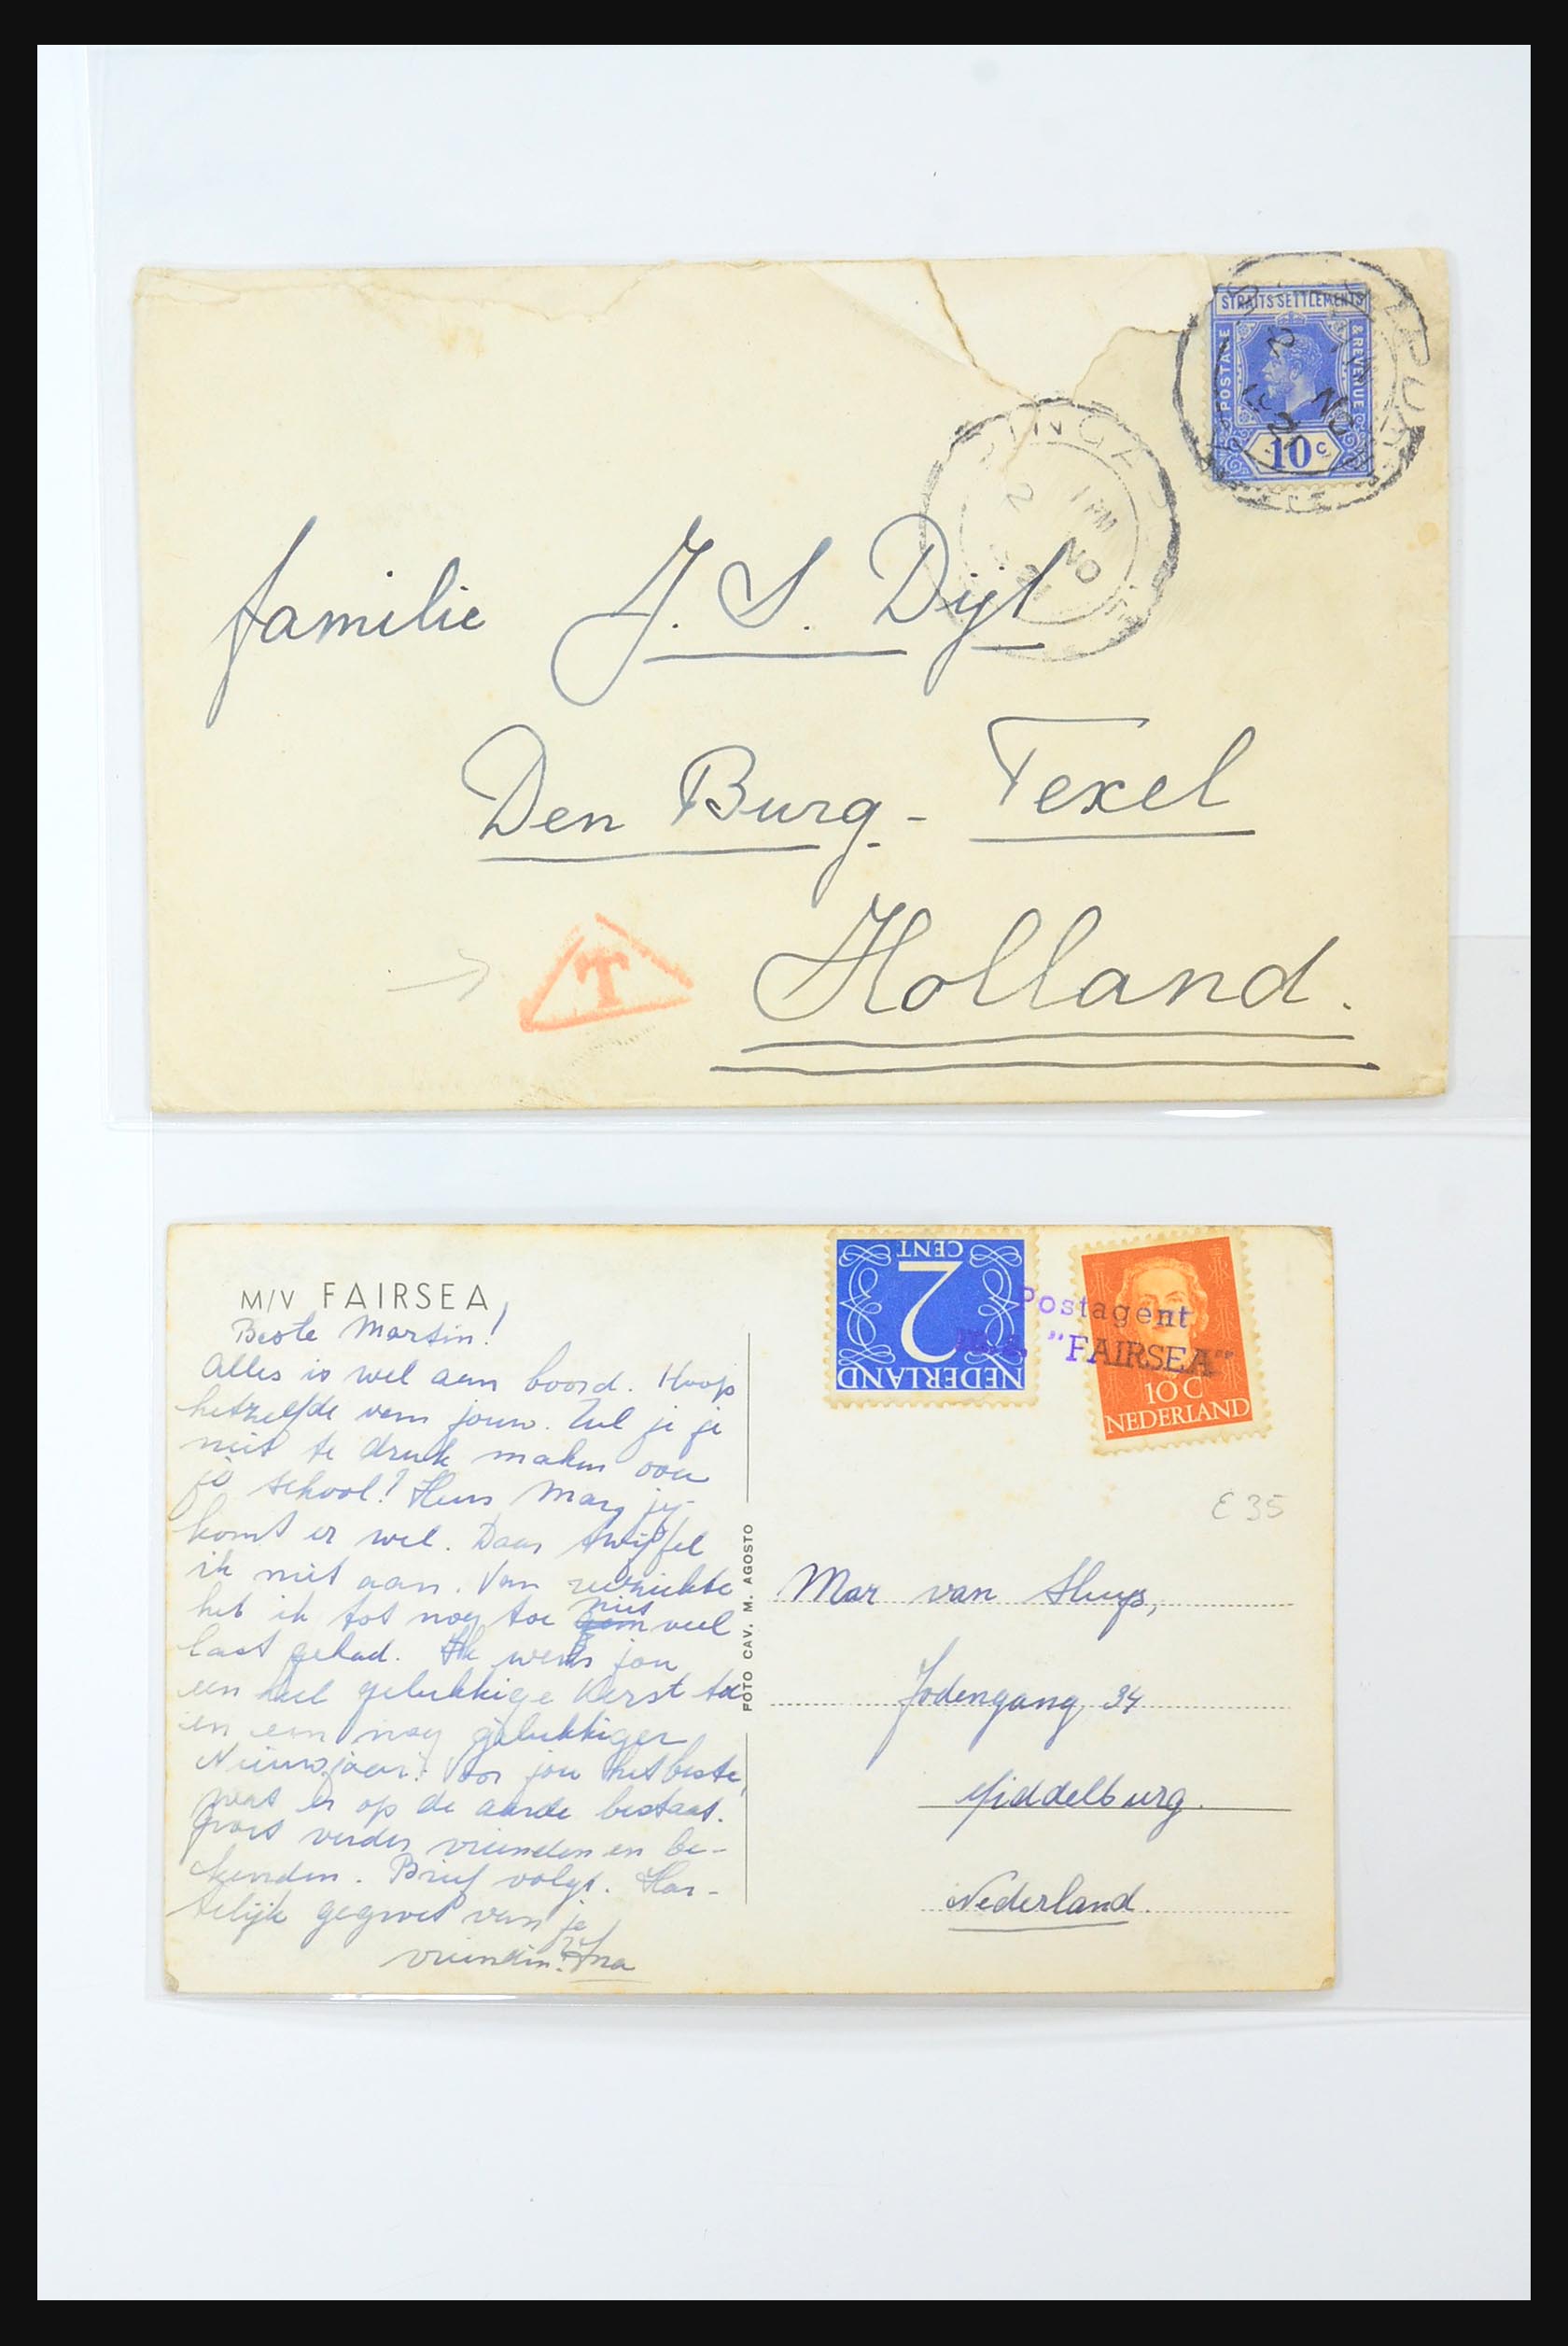 STRAITS SETTLEMENTS
POSTAGE
& REVENUE
10 C
1 PM
2 NO
familie J. S. Dijt
Den Burg - Texel
Holland.
T
M/V FAIRSEA
Beste Martin!
Alles is wel aan boord. Hoop
hetzelfde van jouw. Zul je je
niet te druk maken voor
je school? Heus Mar, jij
komt er wel. Daar twijfel
ik niet aan. Van zeeziekte
heb ik tot nog toe niet veel
last gehad. Ik wens jou
een heel gelukkige Kerst toe
en een nog gelukkiger
Nieuwjaar. Voor jou het beste,
wat er op de aarde bestaat.
Groet verder vrienden en be-
kenden. Brief volgt. Har-
telijk gegroet van je
vriendin: Ina
FOTO CAV. M. AGOSTO
2 CENT
NEDERLAND
10 C
NEDERLAND
Postagent
"FAIRSEA"
E 35
Mar van
Jodengang 34
Middelburg.
Nederland.